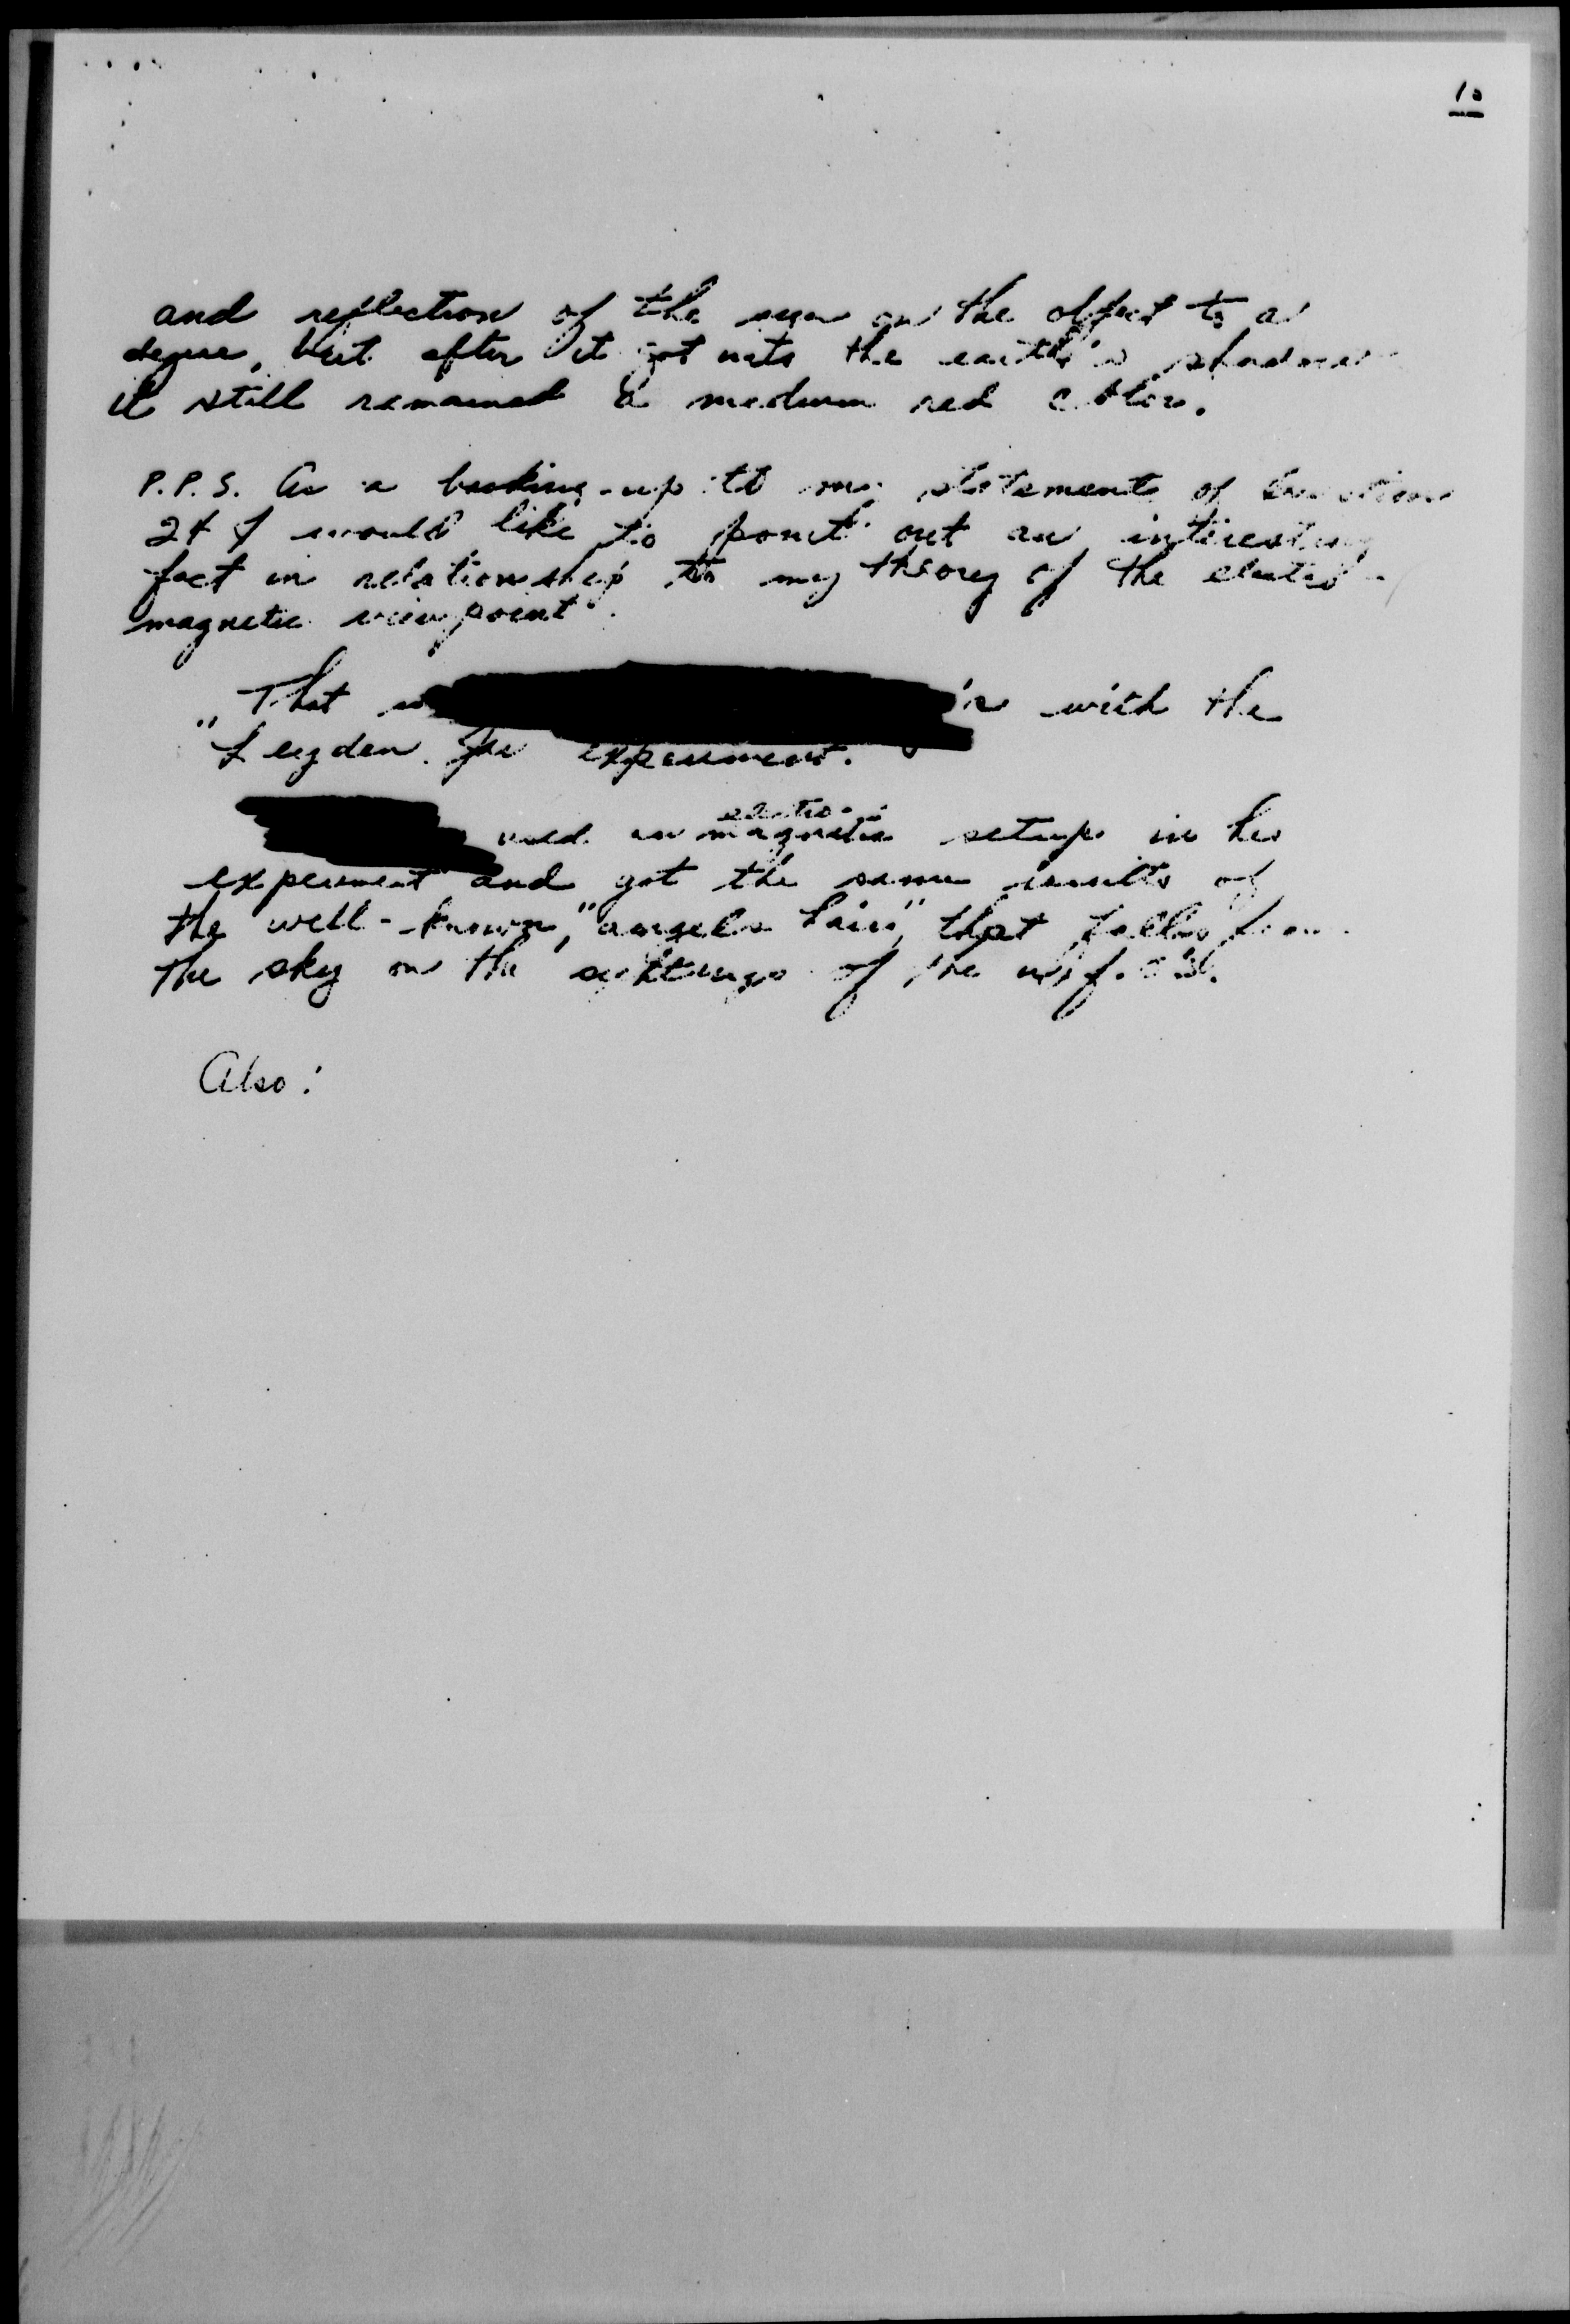 10
and reflection of the sun on the object to a
degree, but after it got into the earth's shadow
it still remained a medium red color.
P.P.S. As a backing-up to my statement of question
24 I would like to point out an interesting
fact in relationship to my theory of the electro-
magnetic viewpoint.
That with the
"Leyden Jar experiment.
electro-
used an magnetic setup in his
experiment and got the same results of
the well-known, "angels hair", that falls from
the sky on the sightings of the u.f.o's.
Also: